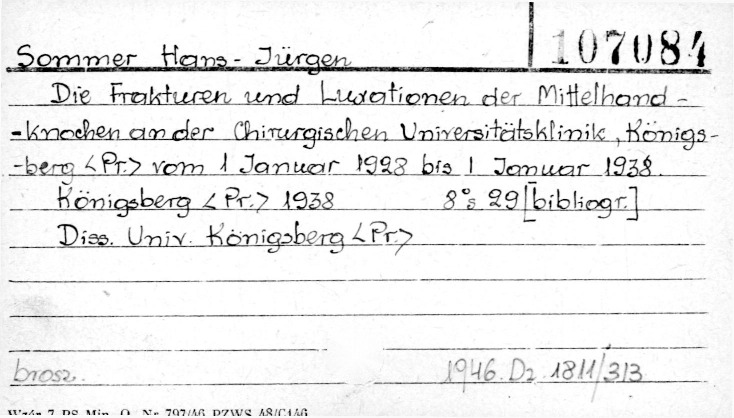 107084
Sommer Hans-Jürgen
Die Frakturen und Luxationen der Mittelhand-
-knochen an der Chirurgischen Universitätsklinik, Königs-
-berg <Pr.> vom 1 Januar 1928 bis 1 Januar 1938.
Königsberg <Pr.> 1938 8° s 29 [bibliogr.]
Diss. Univ. Königsberg <Pr.>
brosz. 1946. Dz 1811/313
Wzór 7 PS Min. O. Nr 797/46 PZWS 48/C146